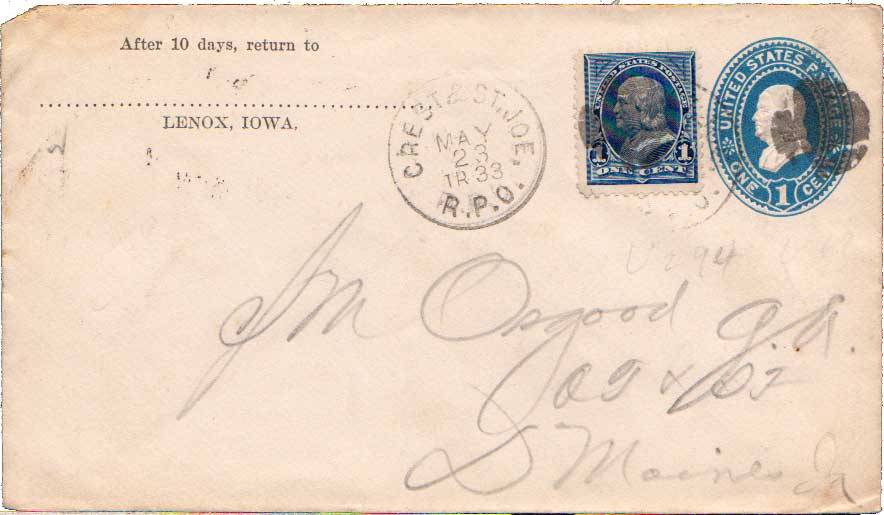 After 10 days, return to
LENOX, IOWA,
CREST & ST. JOE.
MAY
23
TR 33
R.P.O.
UNITED STATES POSTAGE
1 1
ONE CENT
UNITED STATES POSTAGE
ONE 1 CENT
U294
J M Osgood G. A.
D Moines Ia